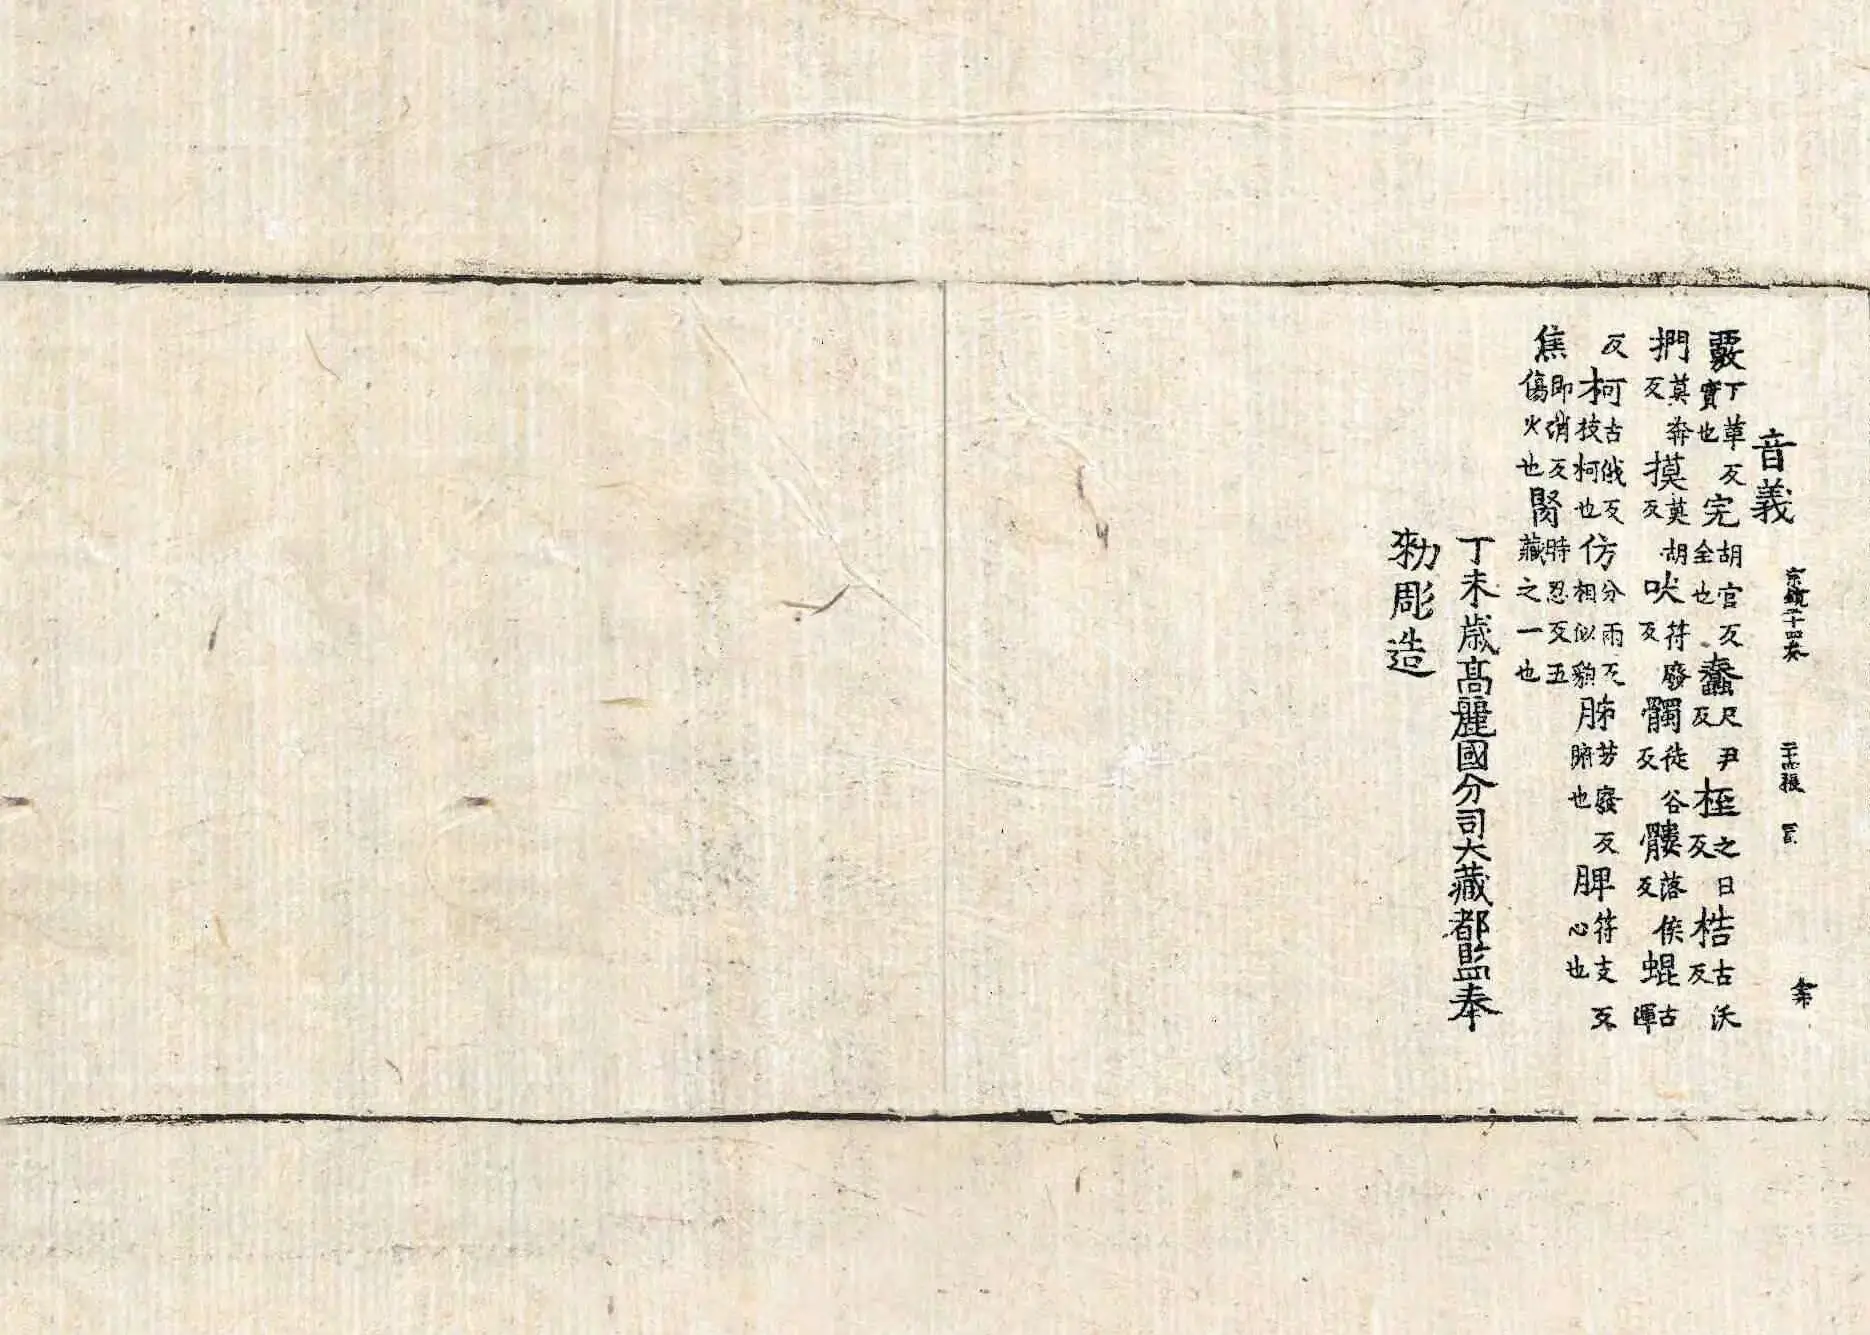 宗鏡二十四卷
音義
覈丁革反實也完胡官反全也蠢尺尹反桎之日反梏古沃反
捫莫奔反摸莫胡反吠符廢反髑徒谷反髏落侯反蜫古渾
反柯古俄反枝柯也仿分兩反相似貌肺芳廢反腑也脾符支反心也
焦即消反傷火也腎時忍反五藏之一也
丁未歲高麗國分司大藏都監奉
勑彫造